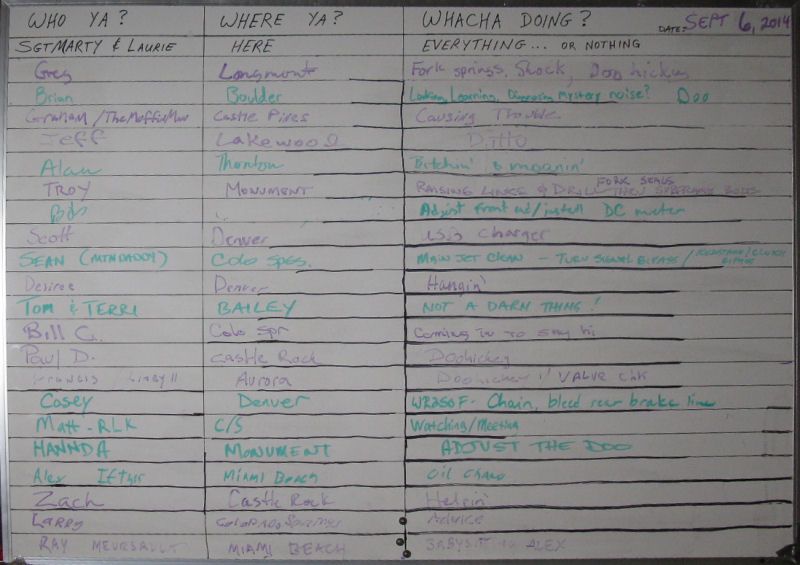 WHO YA? WHERE YA? WHACHA DOING? DATE: SEPT 6, 2014
SGTMARTY & LAURIE HERE EVERYTHING... OR NOTHING
Greg Longmont Fork springs, Shock, Doohickey
Brian Boulder Looking, Learning, Diagnosing mystery noise? Doo
GRAHAM/TheMuffinMan Castle Pines Causing Trouble
Jeff Lakewood Ditto
Alan Thornton Bitchin' & moanin'
TROY MONUMENT RAISING LINKS & DRILL THEN FORK SEALS
Bob Adjust front end/install DC meter
Scott Denver USB Charger
SEAN (MTNDADDY) Colo Spgs. MAIN JET CLEAN - TURN SIGNAL BYPASS / /CLUTCH BYPASS
Desiree Denver Hangin'
TOM & TERRI BAILEY NOT A DARN THING!
Bill G. Colo Spr Coming in to say hi
Paul D. Castle Rock Doohickey
Aurora Doohickey VALVE chk
Casey Denver WR250F - Chain, bleed rear brake line
Matt - RLK C/S Watching/Meeting
HANNDA MONUMENT ADJUST THE DOO
Alex Miami Beach Oil
Zach Castle Rock Helpin'
LARRY Colorado Springs Advice
RAY MEURSAULT MIAMI BEACH BABYSITTING ALEX